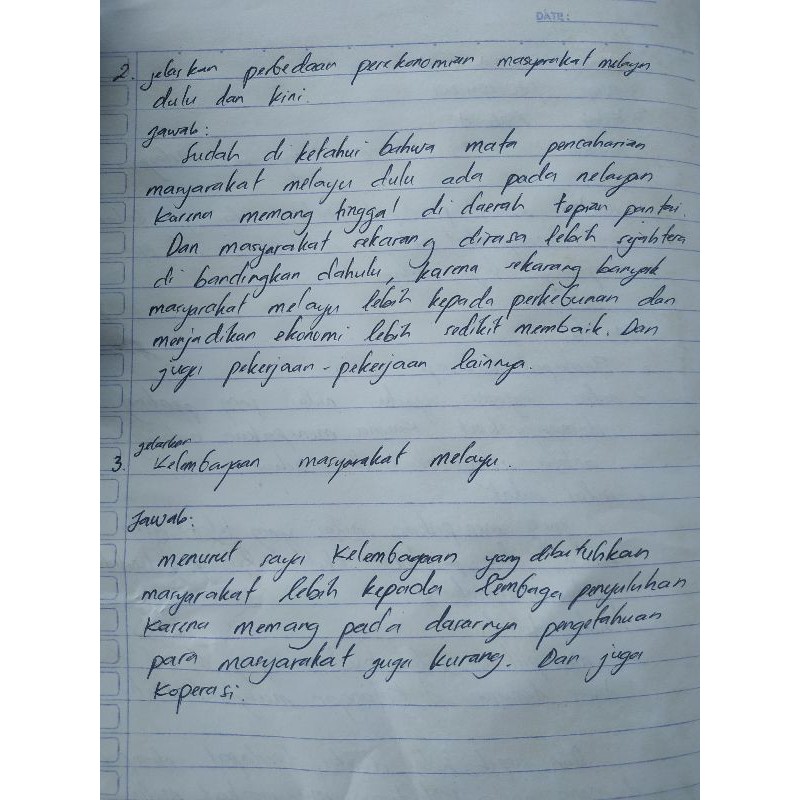 DATE:
2. jelaskan perbedaan perekonomian masyarakat melayu
dulu dan kini.
Jawab:
Sudah di ketahui bahwa mata pencaharian
masyarakat melayu dulu ada pada nelayan
karena memang tinggal di daerah tepian pantai.
Dan masyarakat sekarang dirasa lebih sejahtera
di bandingkan dahulu, karena sekarang banyak
masyarakat melayu lebih kepada perkebunan dan
menjadikan ekonomi lebih sedikit membaik. Dan
juga pekerjaan-pekerjaan lainnya.
jelaskan
3. Kelembagaan masyarakat melayu.
Jawab:
menurut saya Kelembagaan yang dibutuhkan
masyarakat lebih kepada lembaga penyuluhan
karena memang pada dasarnya pengetahuan
para masyarakat juga kurang. Dan juga
koperasi.